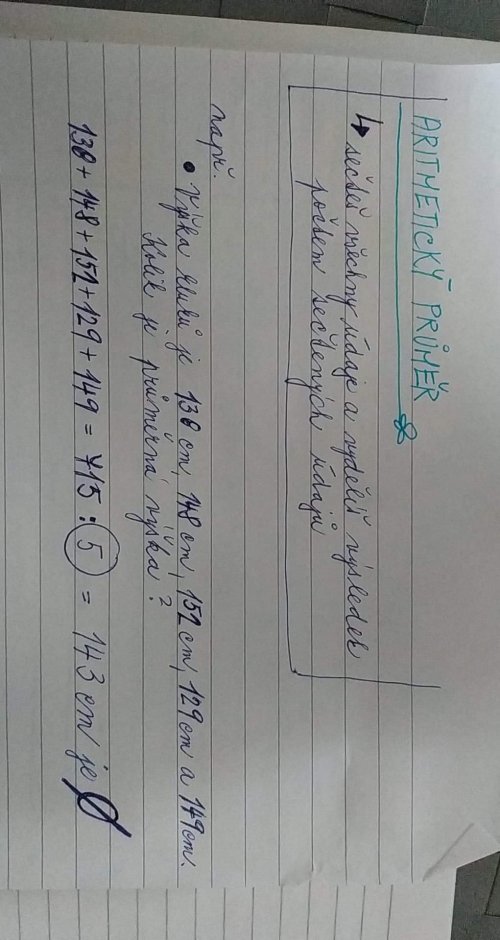 ARITMETICKÝ PRŮMĚR
↳ sečteš všechny údaje a vydělíš výsledek
počtem sečtených údajů
např.
• Výška žáků je 138 cm, 148 cm, 151 cm, 129 cm a 149 cm.
Kolik je průměrná výška?
138 + 148 + 151 + 129 + 149 = 715 : 5 = 143 cm je ∅